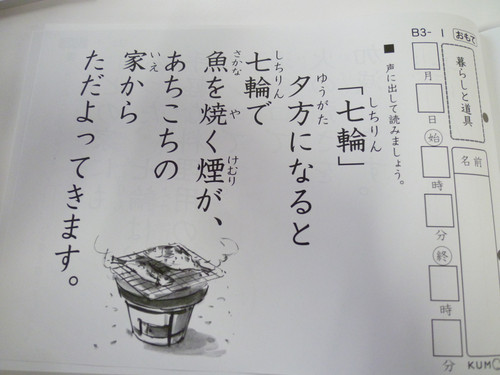 B3-1
おもて
暮らしと道具
名前
月
日
始
時
分
終
時
分
KUMO
■ 声に出して読みましょう。
「七輪」
しちりん
夕方になると
ゆうがた
七輪で
しちりん
魚を焼く煙が、
さかな や けむり
あちこちの
家から
いえ
ただよってきます。